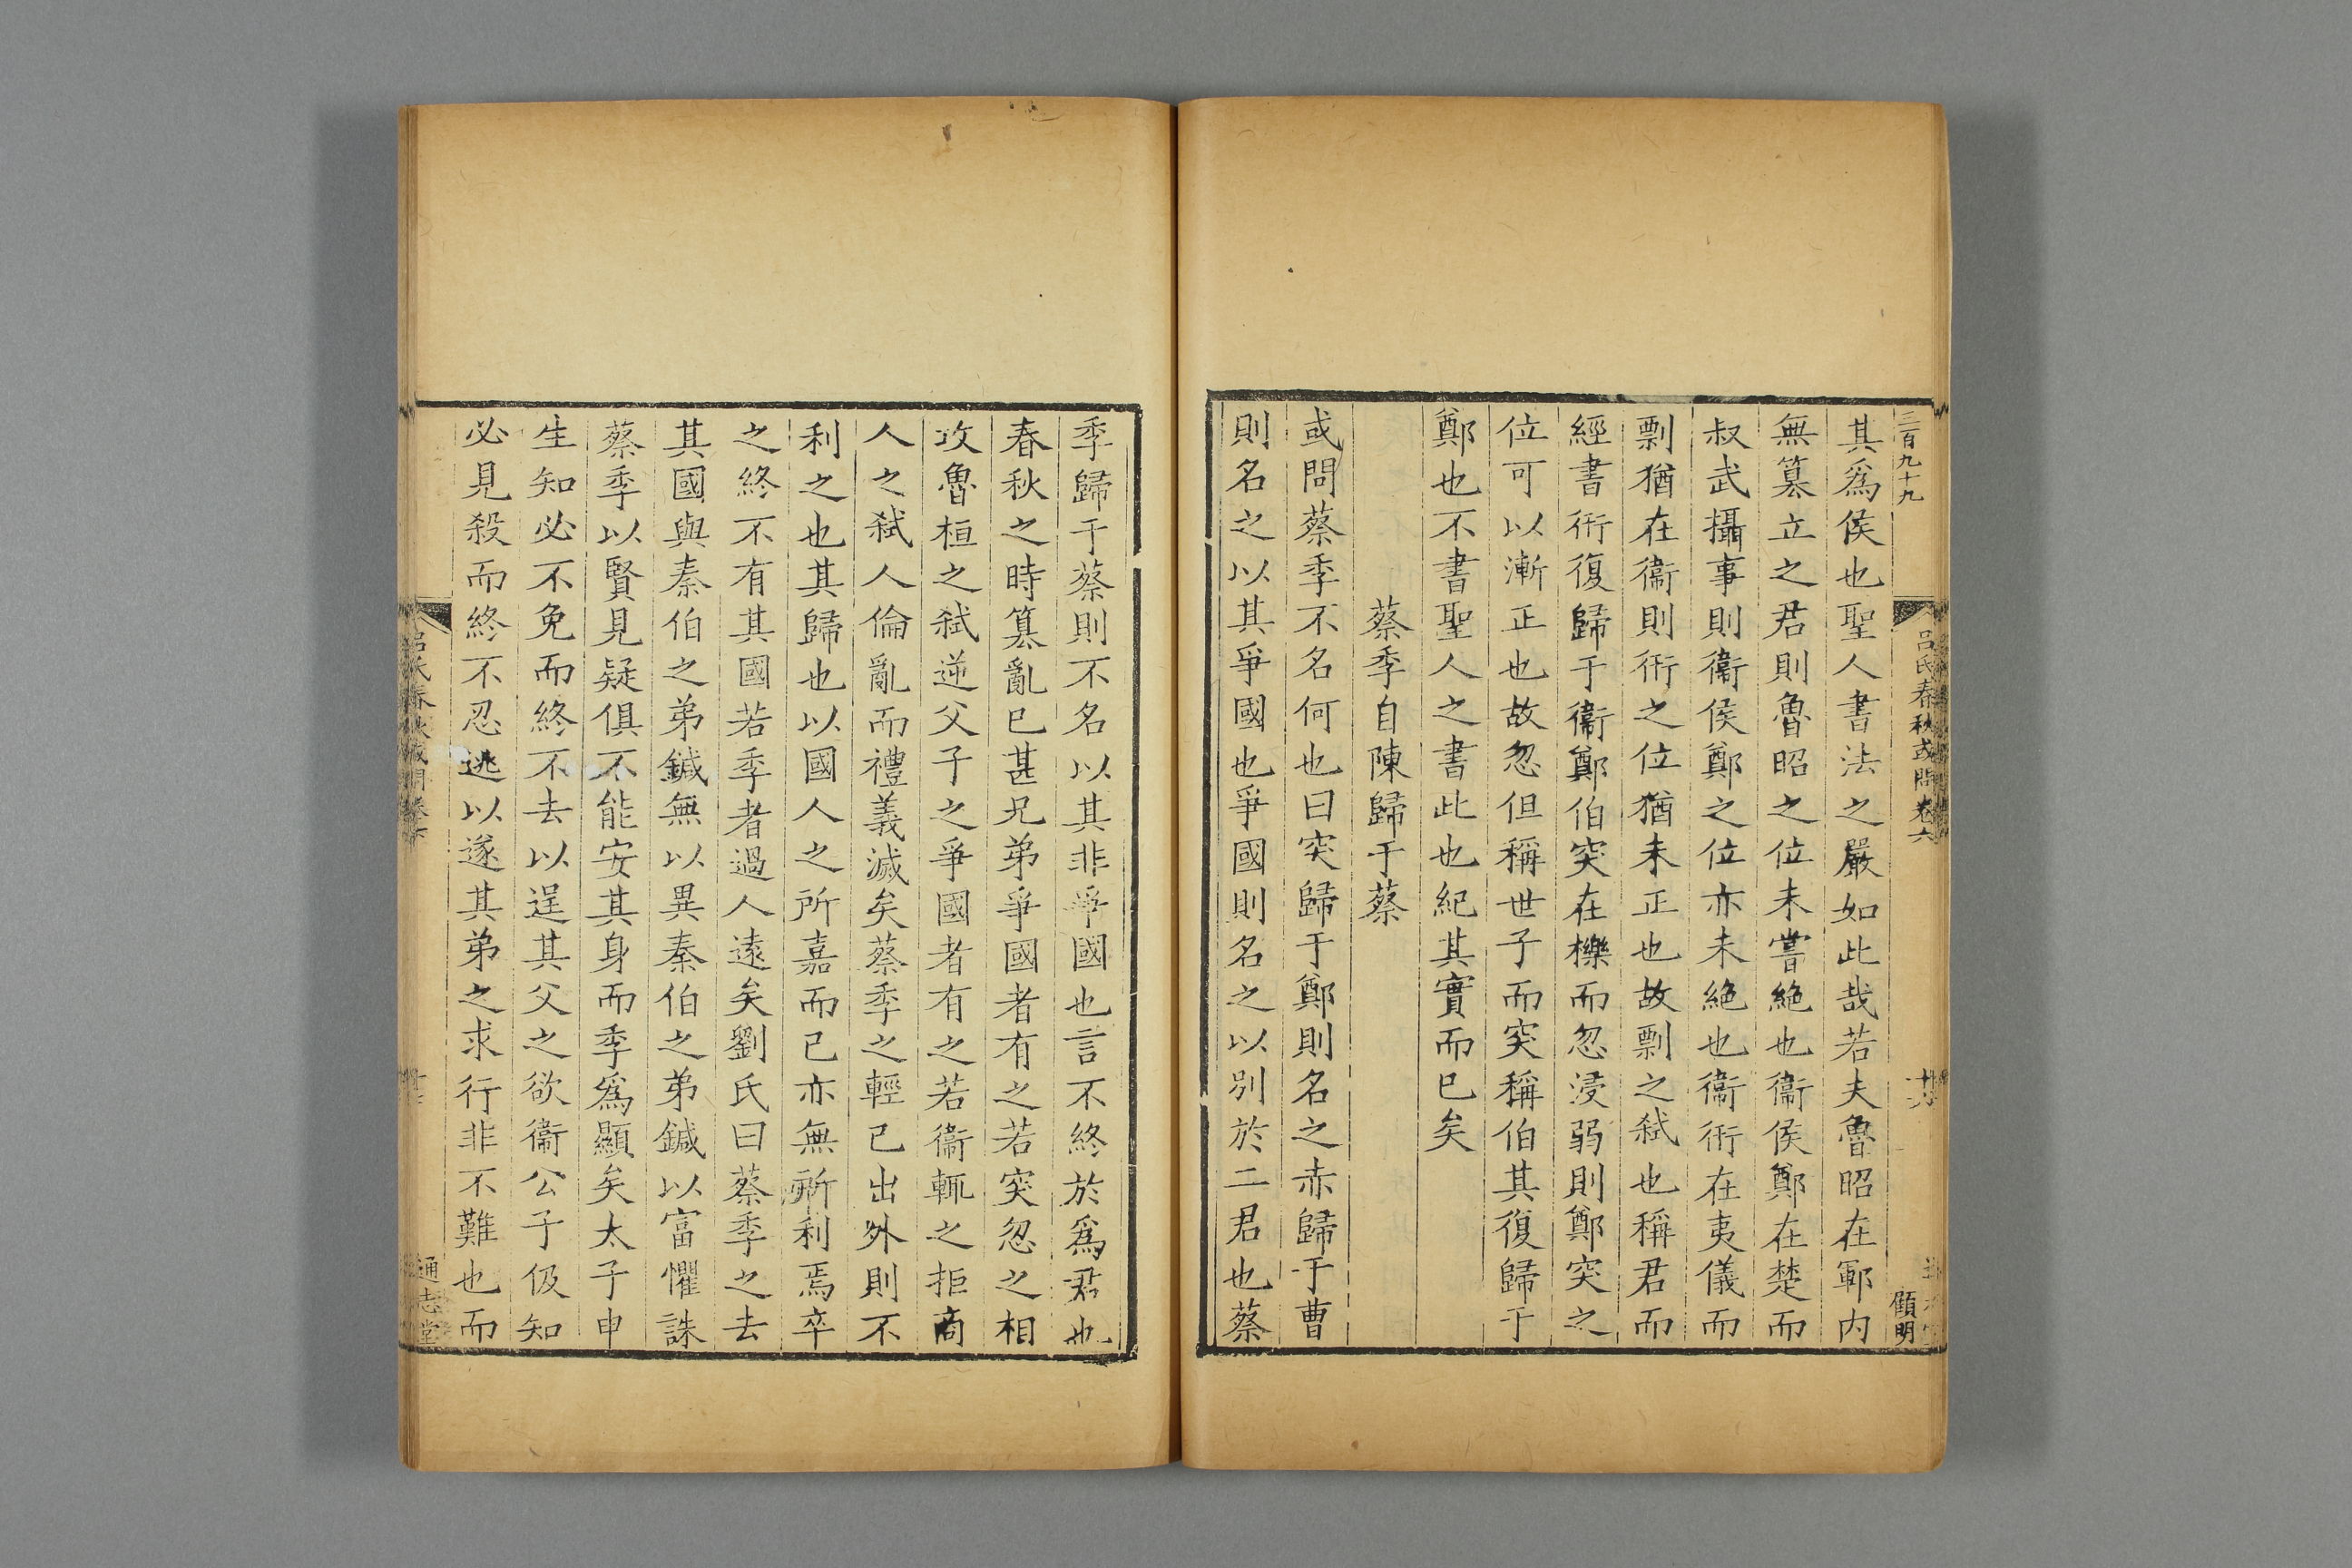 三百九十九
呂氏春秋或問卷六
顧明
其爲侯也聖人書法之嚴如此哉若夫魯昭在鄆内
無篡立之君則魯昭之位未嘗絶也衞侯鄭在楚而
叔武攝事則衞侯鄭之位亦未絶也衞衎在夷儀而
剽猶在衞則衎之位猶未正也故剽之弑也稱君而
經書衎復歸于衞鄭伯突在櫟而忽浸弱則鄭突之
位可以漸正也故忽但稱世子而突稱伯其復歸于
鄭也不書聖人之書此也紀其實而已矣
蔡季自陳歸于蔡
或問蔡季不名何也曰突歸于鄭則名之赤歸于曹
則名之以其爭國也爭國則名之以别於二君也蔡
季歸于蔡則不名以其非爭國也言不終於爲君也
春秋之時篡亂已甚兄弟爭國者有之若突忽之相
攻魯桓之弑逆父子之爭國者有之若衞輒之拒商
人之弑人倫亂而禮義滅矣蔡季之輕已出外則不
利之也其歸也以國人之所嘉而已亦無所利焉卒
之終不有其國若季者過人遠矣劉氏曰蔡季之去
其國與秦伯之弟鍼無以異秦伯之弟鍼以富懼誅
蔡季以賢見疑俱不能安其身而季爲顯矣太子申
生知必不免而終不去以逞其父之欲衞公子伋知
必見殺而終不忍逃以遂其弟之求行非不難也而
呂氏春秋或問卷六
通志堂